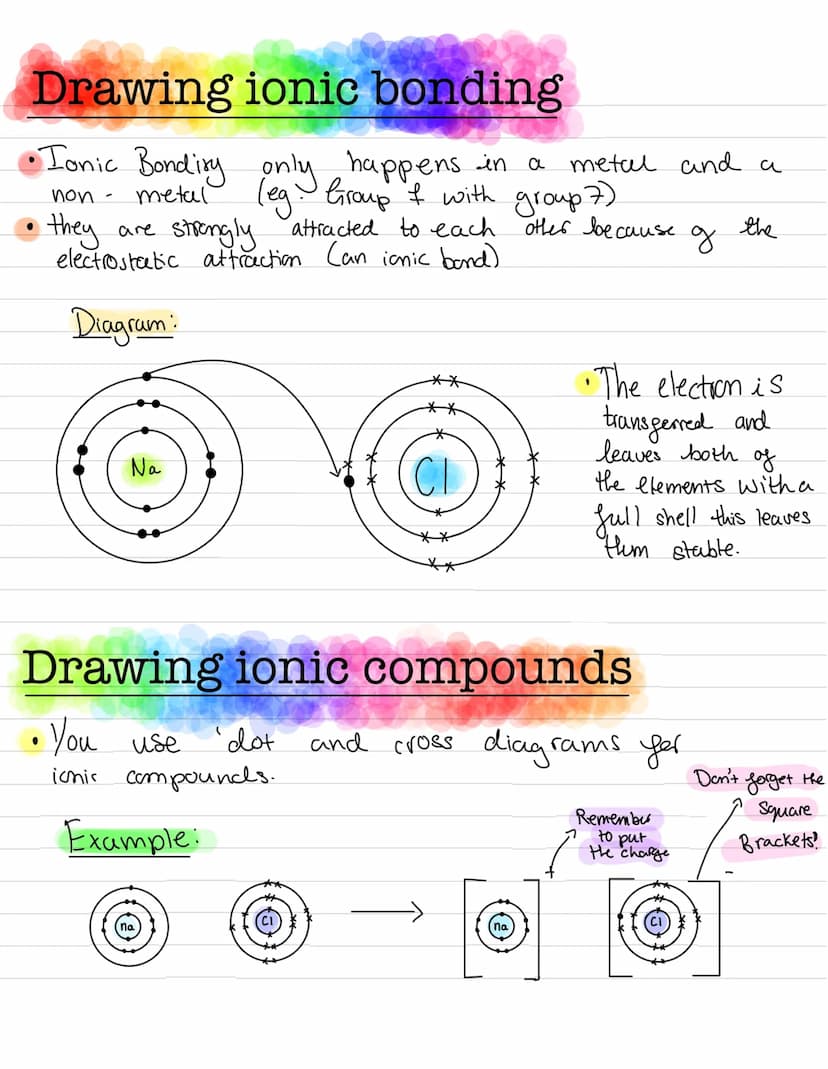 Drawing ionic bonding
• Ionic Bonding only happens in a metal and a
non-metal (eg. Group 1 with group 7)
• they are strongly attracted to each other because of the
electrostatic attraction (an ionic bond)
Diagram:
Na
Cl
• The electron is
transferred and
leaves both of
the elements with a
full shell this leaves
them stable.
Drawing ionic compounds
• You use 'dot and cross diagrams for
ionic compounds.
Don't forget the
Square
Brackets!
Remember
to put
the charge
Example:
na
Cl
na
+
Cl
-